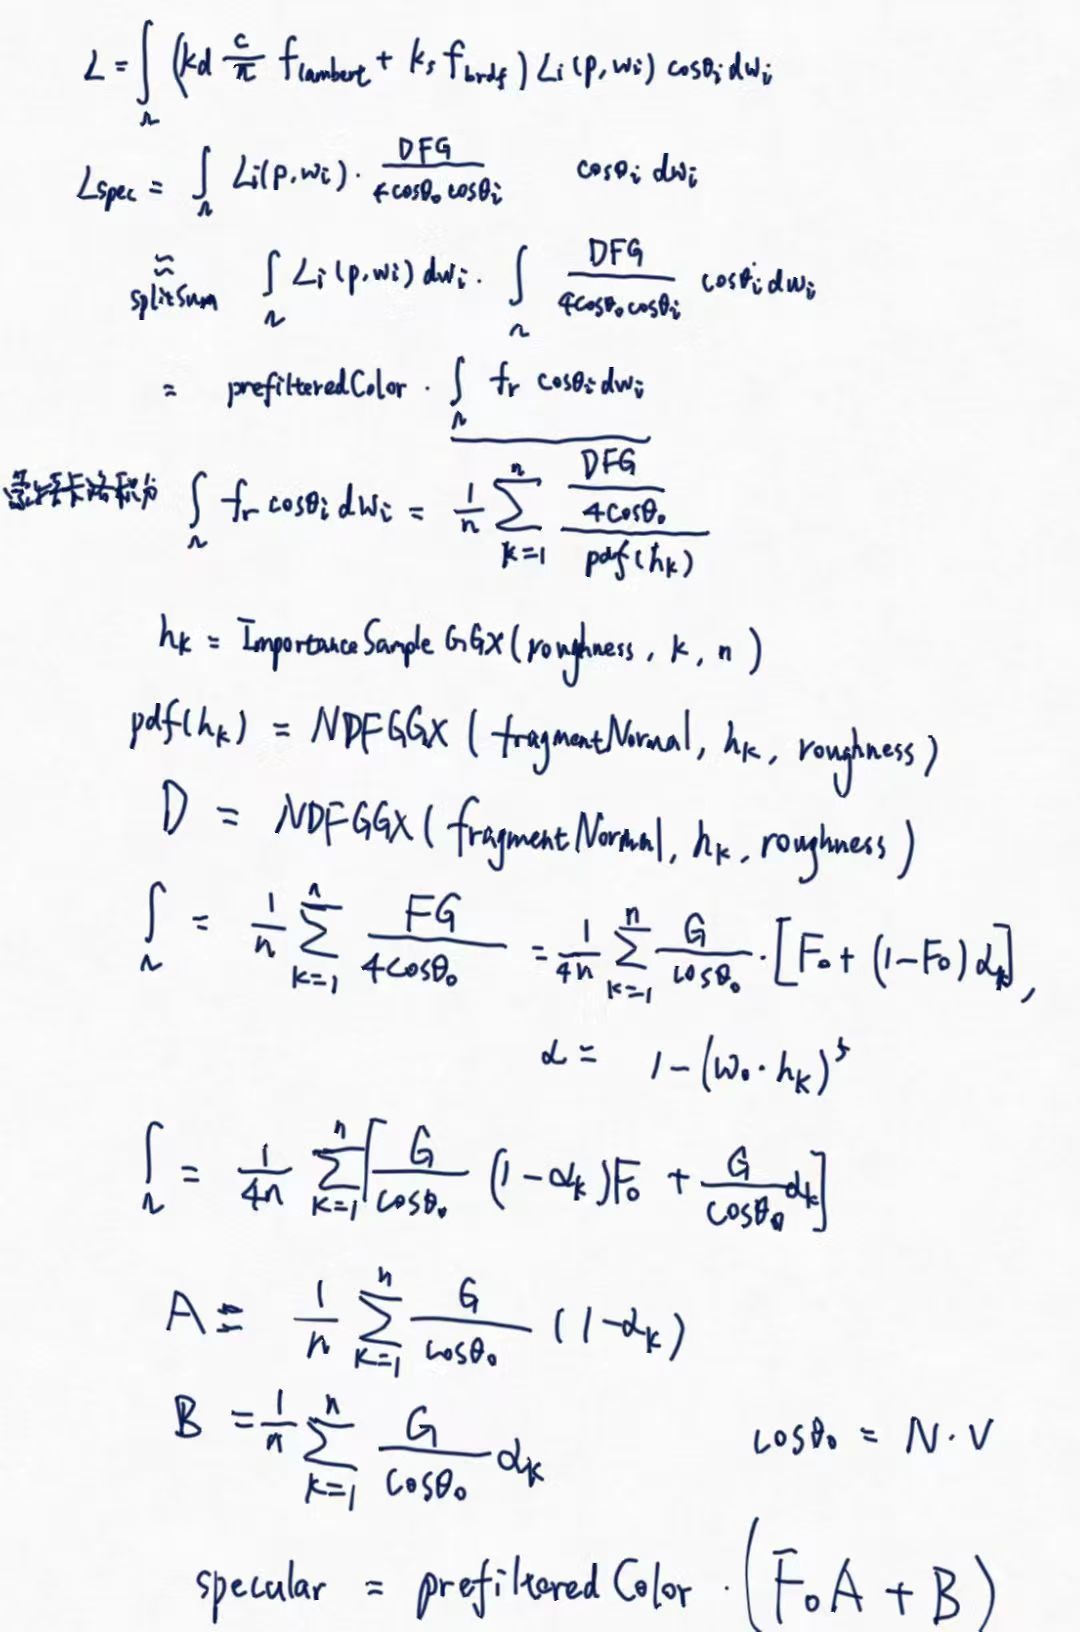 L = ∫_Ω (kd c/π f_lambert + ks f_brdf) Li(p,wi) cosθi dwi
Lspec = ∫_Ω Li(p,wi) · DFG/(4cosθo cosθi) cosθi dwi
≈ splitSum ∫_Ω Li(p,wi) dwi · ∫_Ω DFG/(4cosθo cosθi) cosθi dwi
= prefilteredColor · ∫_Ω fr cosθi dwi
蒙特卡洛积分 ∫_Ω fr cosθi dwi = 1/n Σ_{k=1}^{n} (DFG/(4cosθo))/pdf(hk)
hk = ImportanceSampleGGX(roughness, k, n)
pdf(hk) = NDFGGX(fragmentNormal, hk, roughness)
D = NDFGGX(fragmentNormal, hk, roughness)
∫_Ω = 1/n Σ_{k=1}^{n} FG/(4cosθo) = 1/4n Σ_{k=1}^{n} G/cosθo · [F0 + (1-F0)αk],
α = 1-(wo·hk)^5
∫_Ω = 1/4n Σ_{k=1}^{n} [G/cosθo (1-αk)F0 + G/cosθo αk]
A = 1/n Σ_{k=1}^{n} G/cosθo (1-αk)
B = 1/n Σ_{k=1}^{n} G/cosθo αk cosθo = N·V
specular = prefilteredColor · (F0A + B)